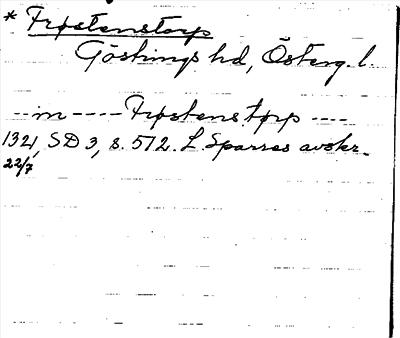 * Frøstenstorp
Göstrings hd, Österg. l.
--- in ---- Frøstenstørp ----
1321, SD 3, s. 512. L. Sparres avskr.
22/7